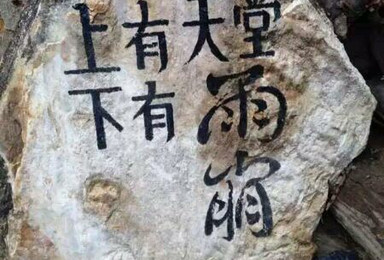 上有天堂
下有雨崩